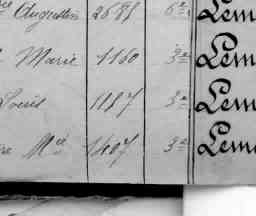 Augustin 2685 6e Lem
Marie 1160 3e Lem
Louis 1157 3e Lem
Mie 1407 3e Lem